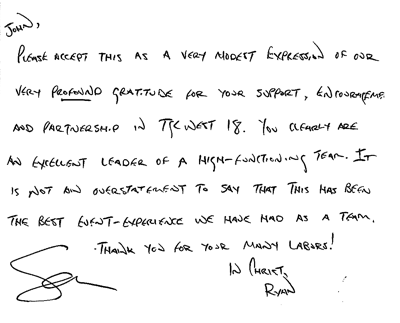 JOHN,
PLEASE ACCEPT THIS AS A VERY MODEST EXPRESSION OF OUR
VERY PROFOUND GRATITUDE FOR YOUR SUPPORT, ENCOURAGEME
AND PARTNERSHIP IN TGC WEST 18. YOU CLEARLY ARE
AN EXCELLENT LEADER OF A HIGH-FUNCTIONING TEAM. IT
IS NOT AN OVERSTATEMENT TO SAY THAT THIS HAS BEEN
THE BEST EVENT-EXPERIENCE WE HAVE HAD AS A TEAM.
THANK YOU FOR YOUR MANY LABORS!
IN CHRIST,
RYAN